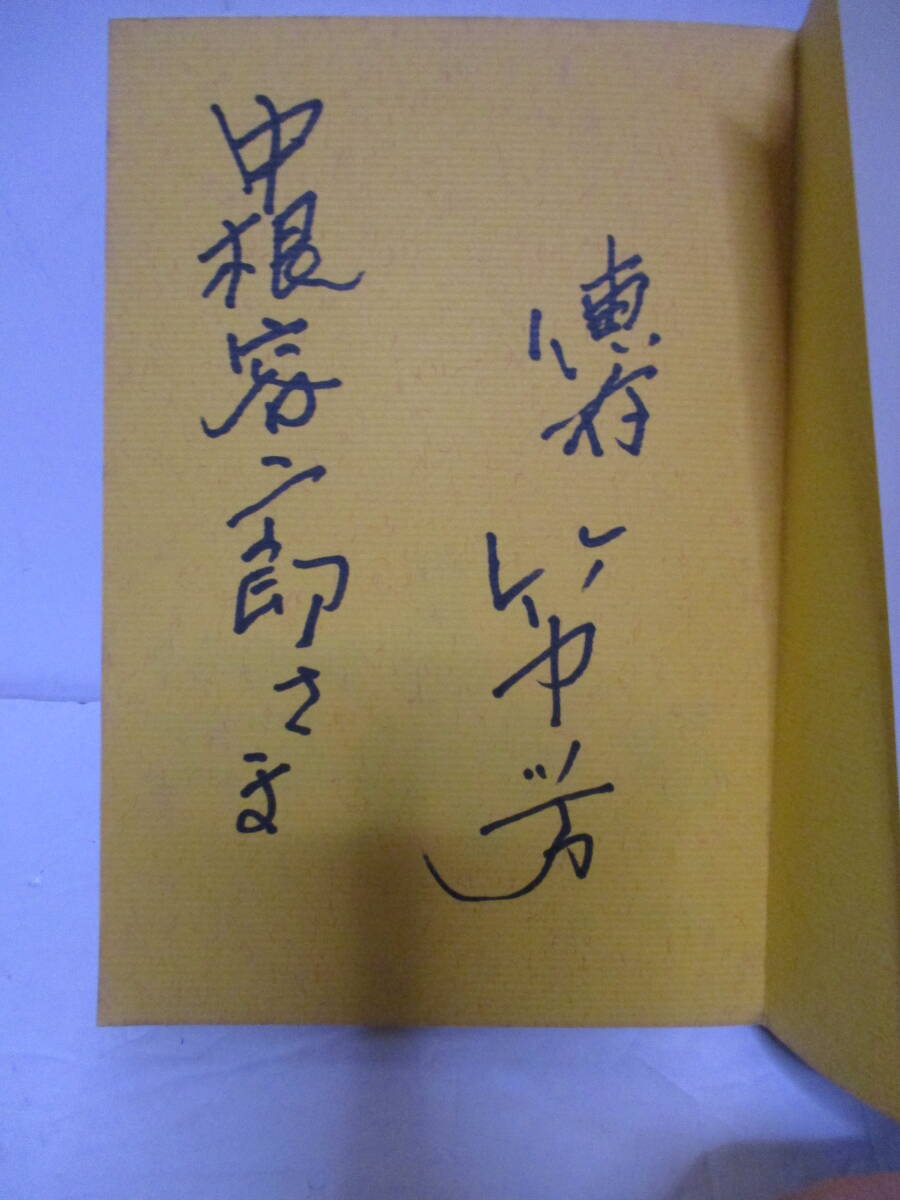 惠存 竹中労
中根 郎さま